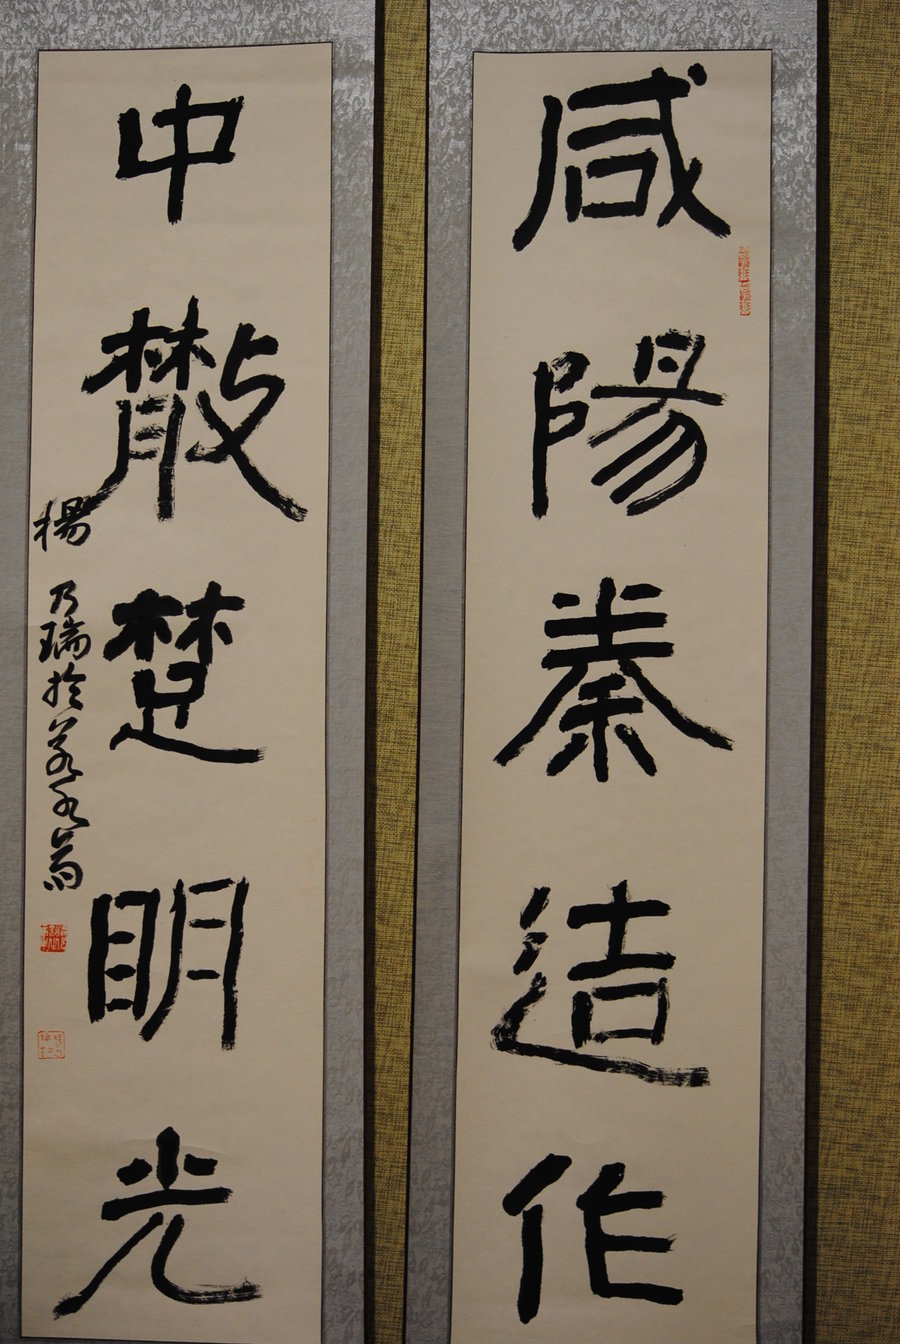 咸陽秦造作
中散楚明光
楊乃瑞於